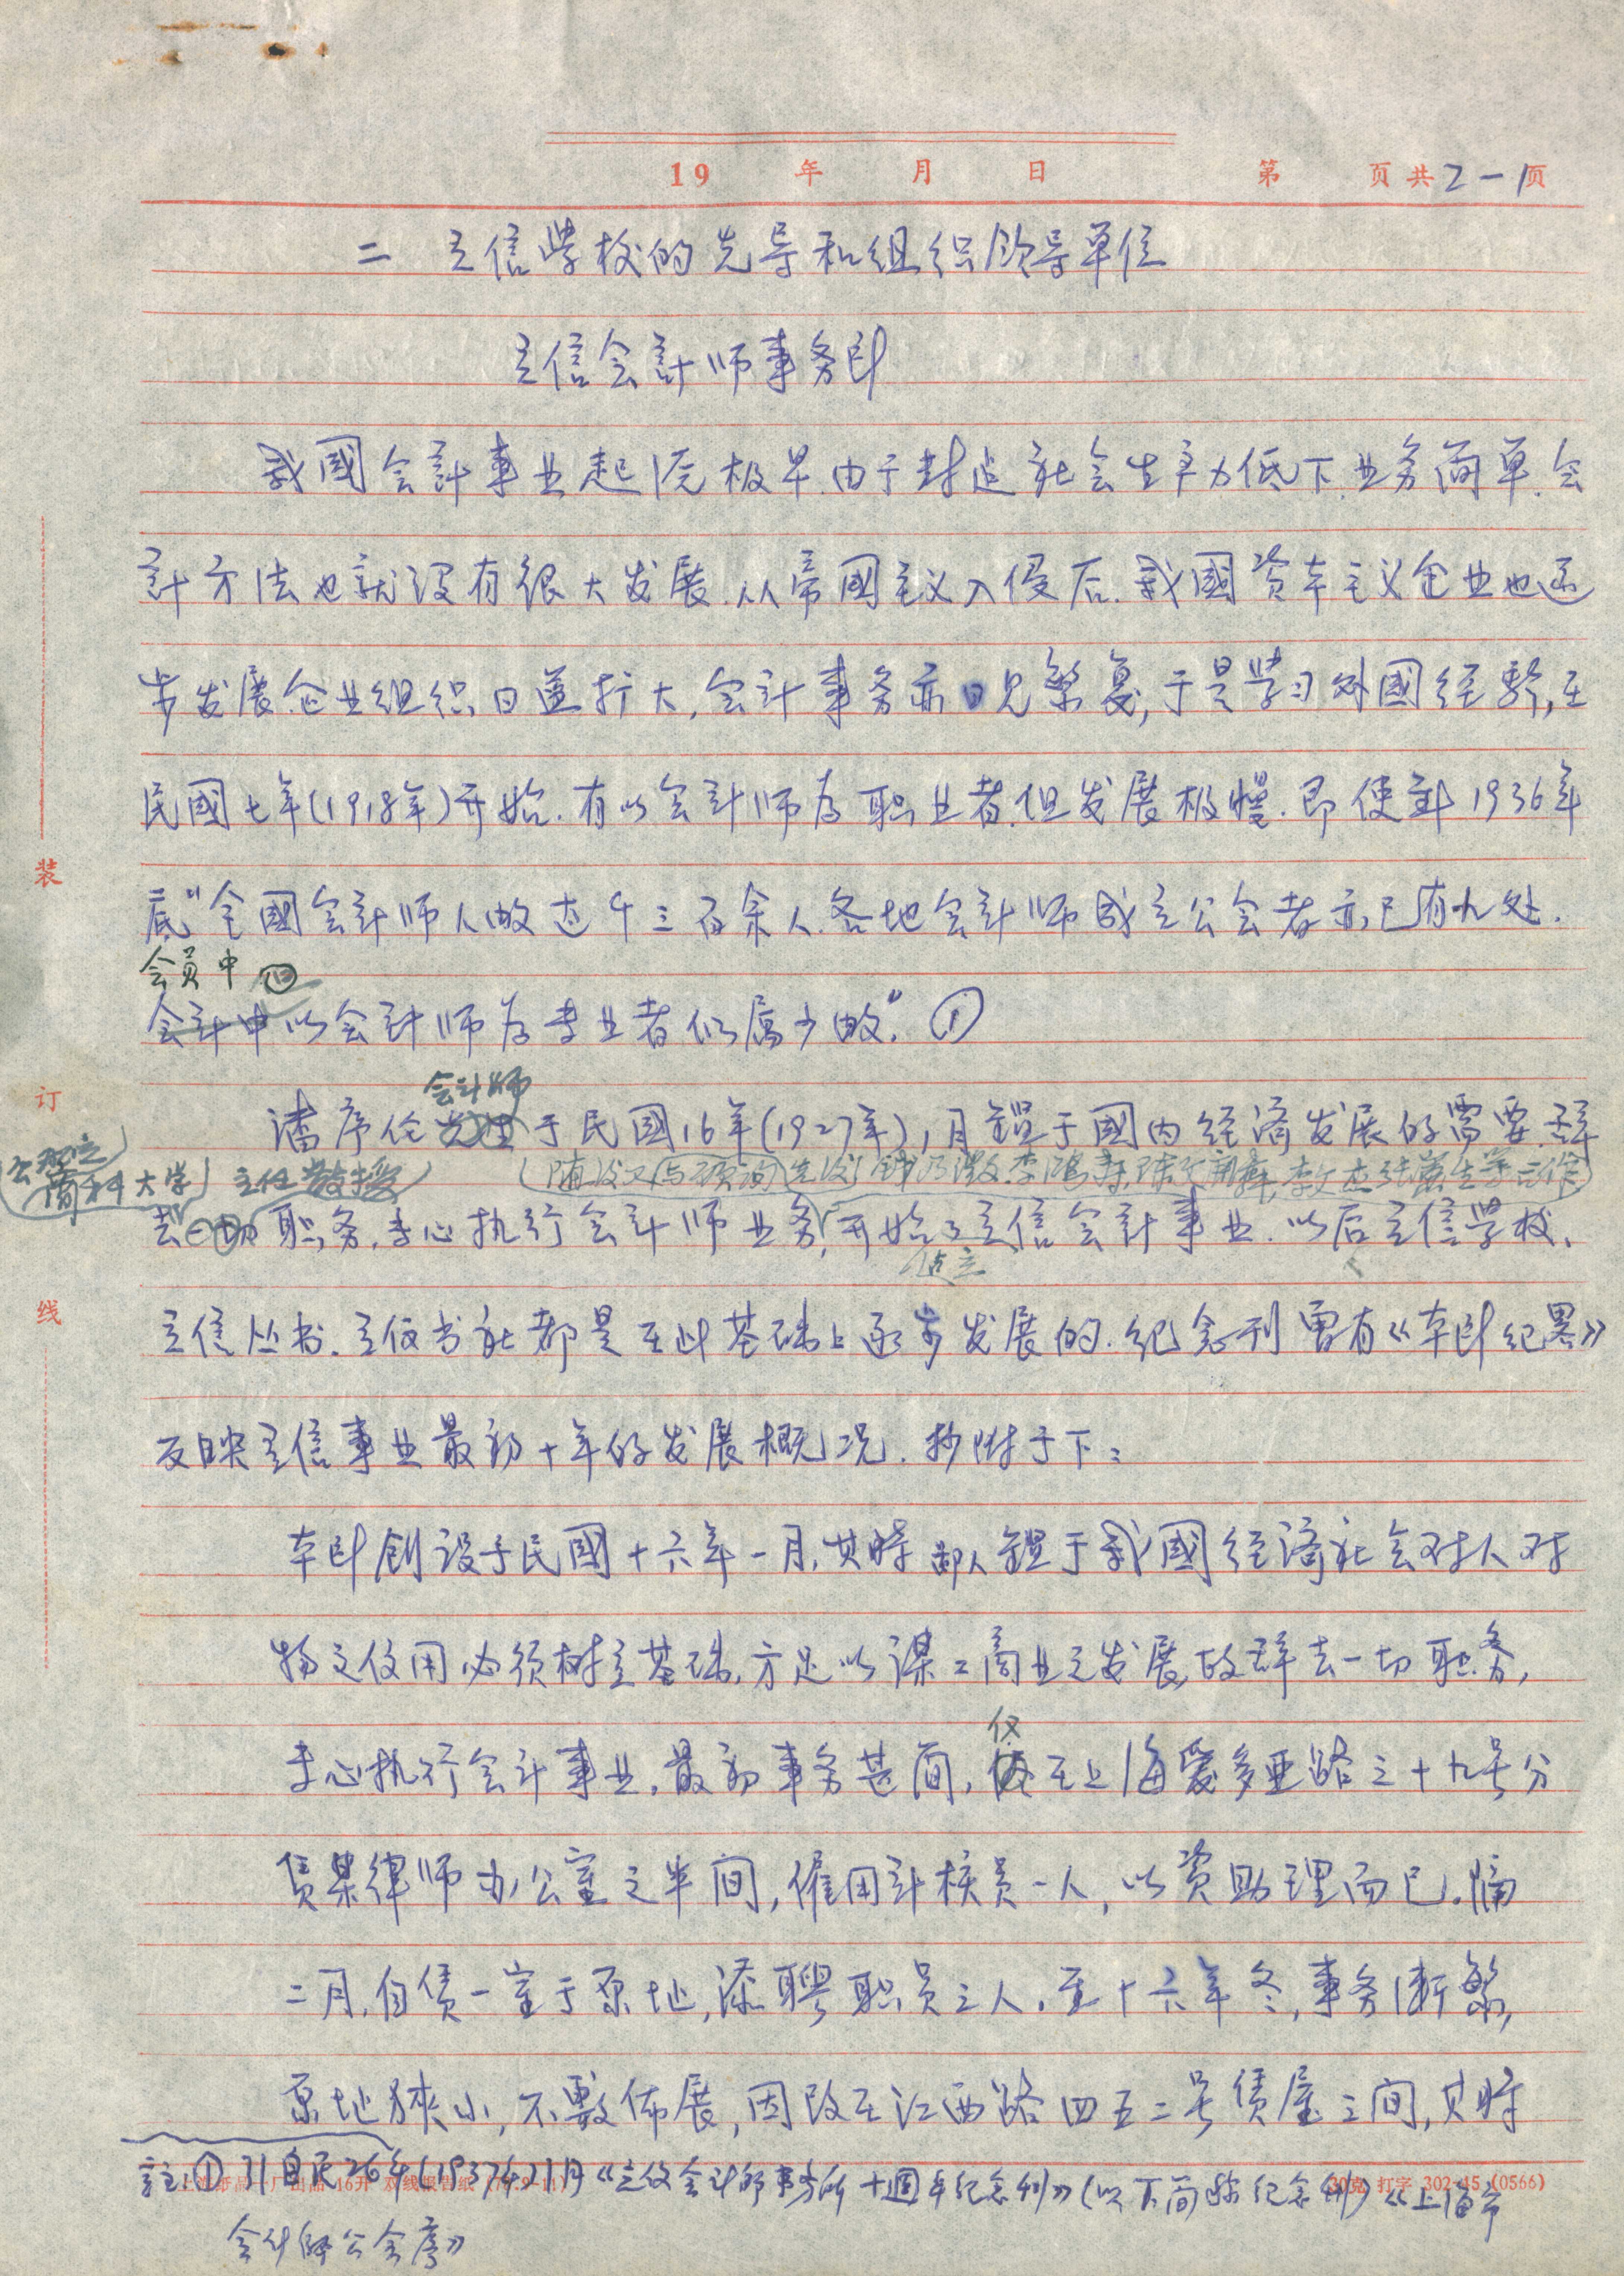 19 年 月 日 第 页共2-1页
二 立信学校的先导和组织领导单位
立信会計师事务所
我國会計事业起源极早.由于封建社会生产力低下.业务简单.会
計方法也就没有很大发展.从帝國主义入侵后.我國资本主义企业也逐
步发展企业组织日益扩大,会計事务亦日见繁复,于是学习外國经验,至
民國七年(1918年)开始.有以会計师为职业者.但发展极慢.即使到1936年
底"全國会計师人数达千三百余人.各地会計师成立公会者亦已有九处.
会员中
会計中以会計师为专业者仍属少数."①
会计师
潘序伦先生于民國16年(1927年)1月鑑于國内经济发展的需要.辞
商科大学 主任教授 (随后又与顾询先后 钱乃澂.李鸿寿.陈文麟.李文杰.张蕙生等合作)
去一切职务.专心执行会計师业务,开始了立信会計事业.以后立信学校、
立信丛书.立信书社都是在此基础上逐步发展的.纪念刊曾有《本所纪畧》
反映立信事业最初十年的发展概况.抄附于下:
本所创设于民國十六年一月,其時鄙人鑑于我國经济社会对人对
物之信用必须树立基础,方足以谋工商业之发展,故辞去一切职务,
仅
专心执行会计事业,最初事务甚简,在上海爱多亚路三十九号分
赁某律师办公室之半间,僱用計核员一人,以资助理而已.隔
二月,自赁一室于原址,添聘职员三人.至十六年冬,事务渐繁,
原址狭小,不敷佈展,因改至江西路四五二号赁屋三间,其時
註:①引自民26年(1937年)1月《立信会计师事务所十週年纪念刊》(以下简称纪念刊)《上海市
会计师公会序》
装
订
线
16开 双线报告纸 30克 打字 302-45 (0566)